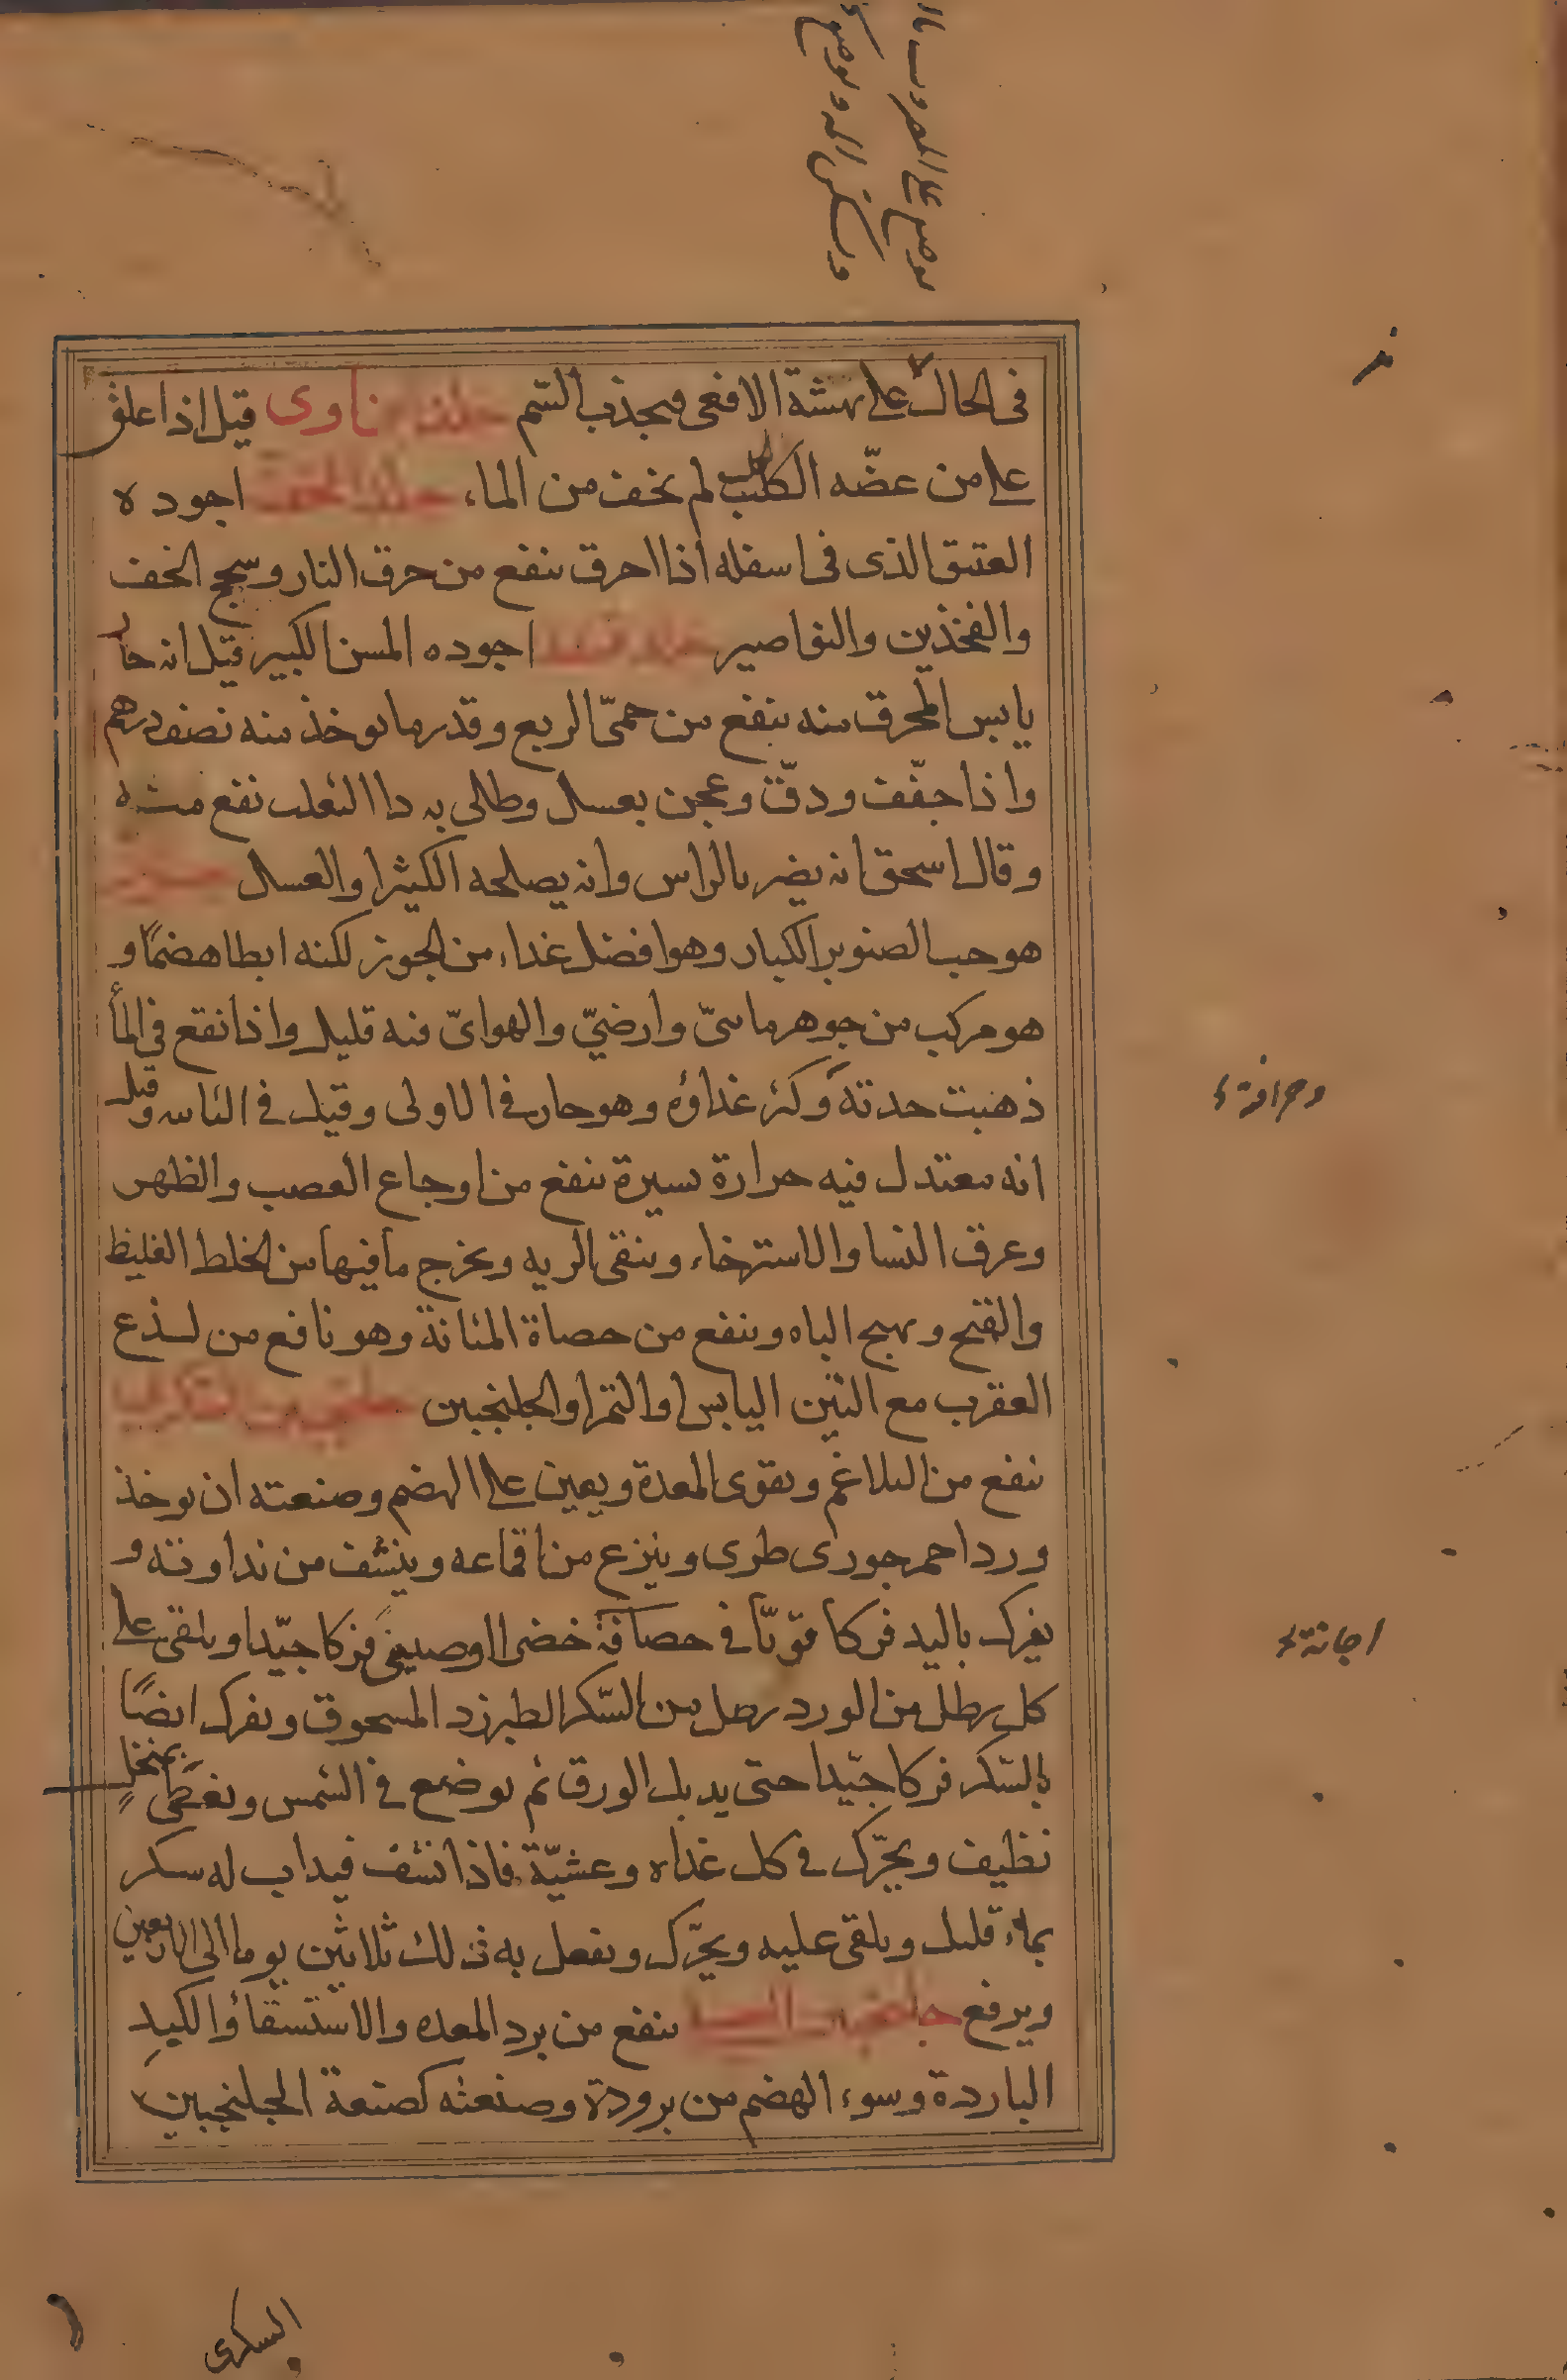 في الحال على نهشة الافعى فيجذب السم جلد ... ناوى قيل اذا علق
على من عضّه الكلب الكلب لم يخف من الماء، جلد الخف اجوده
العتيق الذى فى اسفله اذا احرق ينفع من حرق النار وسحج الخف
والفخذين والبواصير جلد قنفد اجوده المسن الكبير قيل انه حار
يابس المحرق منه ينفع من حمّى الربع وقدر ما يوخذ منه نصف درهم
واذا جفّف ودقّ وعجن بعسل وطلى به دا الثعلب نفع منه
وقال اسحق انه يضر بالراس وانه يصلحه الكثيرا والعسل
هو حب الصنوبر الكبار وهو افضل غداء من الجوز لكنه ابطا هضمًا و
هو مركب من جوهر مائىّ وارضيّ والهوائىّ فيه قليل واذا نقع في المأ
ذهبت حدته وكثر غذاؤه وهو حار في الاولى وقيل في الثانيه وقيل
انه معتدل فيه حرارة يسيرة ينفع من اوجاع العصب والظهر
وعرق النسا والاسترخاء وينقى الريه ويخرج ما فيها من الخلط الغليظ
والقيح ويهيج الباه وينفع من حصاة المثانة وهو نافع من لسذع
العقرب مع التين اليابس او التمر او الجلنجبين جلنجبين السكرى
ينفع من البلاغم ويقوى المعدة ويعين على الهضم وصنعته ان يوخذ
ورد احمر جورى طرى وينزع من اقماعه وينشف من نداوته و
يفرك باليد فركا قويّا في حصافة خضرا اوصينى فركا جيّدا ويلقى على
كل رطل من الورد رطل من السّكر الطبرزد المسحوق ويفرك ايضًا
بالسّكر فركا جيّدا حتى يدبل الورق ثم يوضع في الشمس ويغطّى بمنخل
نظيف ويحرّك في كل غداه وعشيّة فاذا نشف فيداب له سكر
بماء قليل ويلقى عليه ويحرّك ويفعل به ذلك ثلاثين يوما الى الاربعين
ويرفع جلنجبين العسل ينفع من برد المعده والاستسقاء والكبد
الباردة وسوء الهضم من برودة وصنعته كصنعة الجلنجبين
وحرافته
اجانة
السكرى